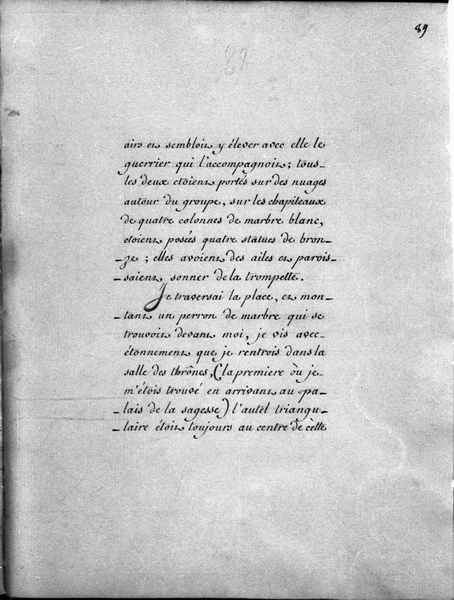 89
89
airs et sembloit y élever avec elle le
guerrier qui l'accompagnoit; tous-
les deux etoient portés sur des nuages
autour du groupe, sur les chapiteaux
de quatre colonnes de marbre blanc,
etoient posées quatre statues de bron-
-ze; elles avoient des ailes et parois-
-saient sonner de la trompette.
Je traversai la place, et mon-
-tant un perron de marbre qui se
-trouvoit devant moi, je vis avec-
-étonnement que je rentrois dans la
salle des thrônes, (la premiere où je-
m'étois trouvé en arrivant au pa-
-lais de la sagesse) l'autel triangu-
-laire étoit toujours au centre de cette